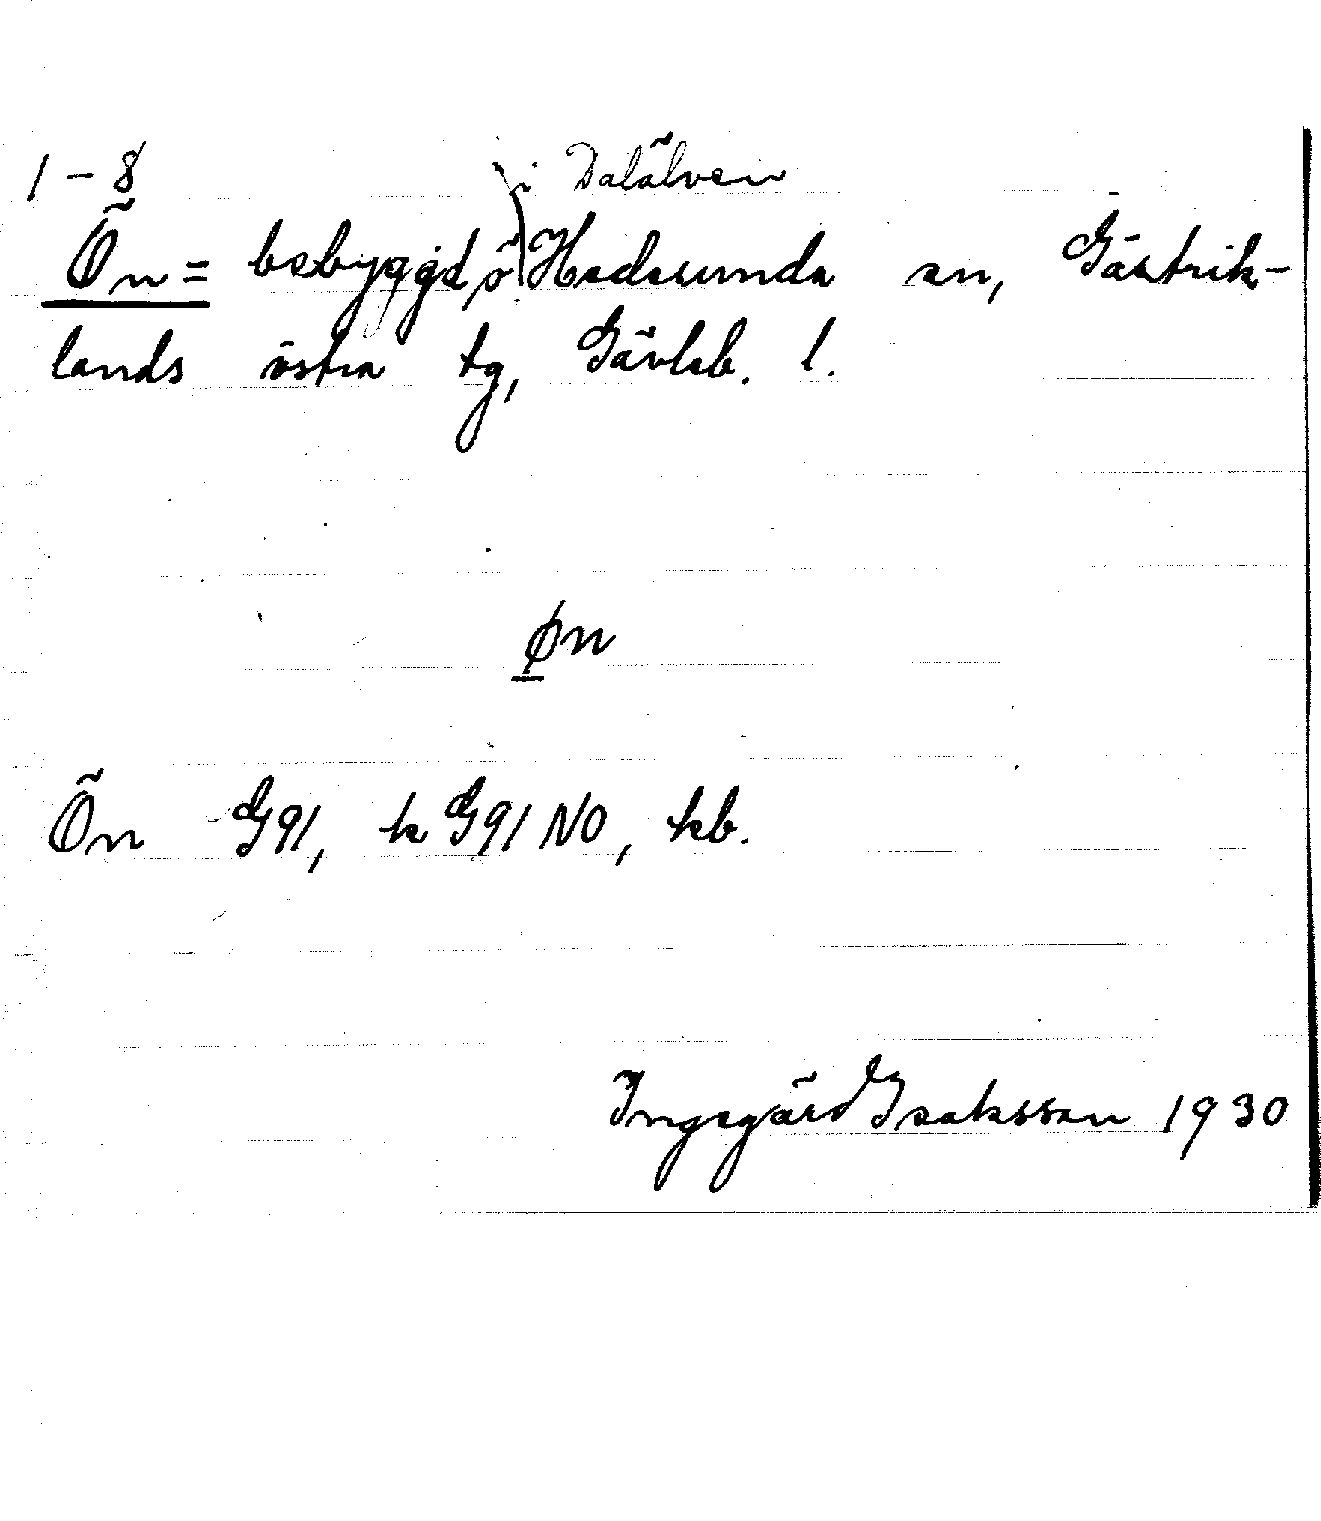 1-8
i Dalälven
Ön = bebyggd ö Hedesunda sn, Gästrik-
lands östra tg, Gävleb. l.
øn
Ön G91, k G91 NO, kb.
Ingegärd Isaksson 1930